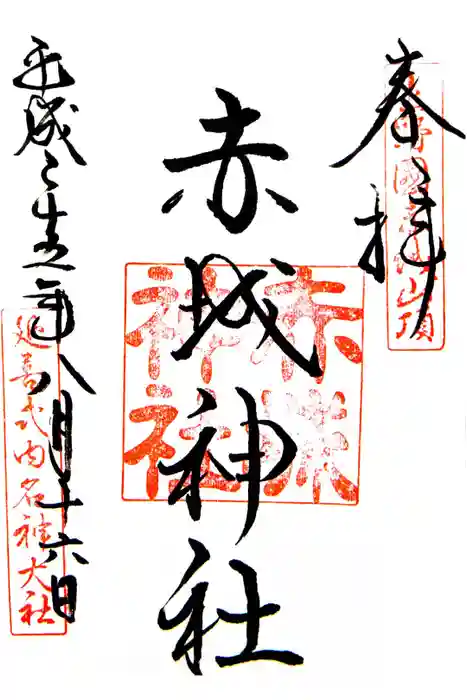 奉拝
上野國赤城山頂
赤城神社
赤城神社
平成二年八月十六日
延喜式内名神大社